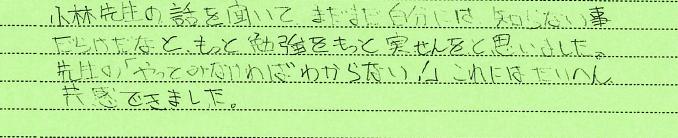 小林先生の話を聞いて、まだまだ自分には、知らない事
だらけだなと、もっと勉強をもっと実せんをと思いました。
先生の「やってみなければわからない!」これにはたいへん
共感できました。